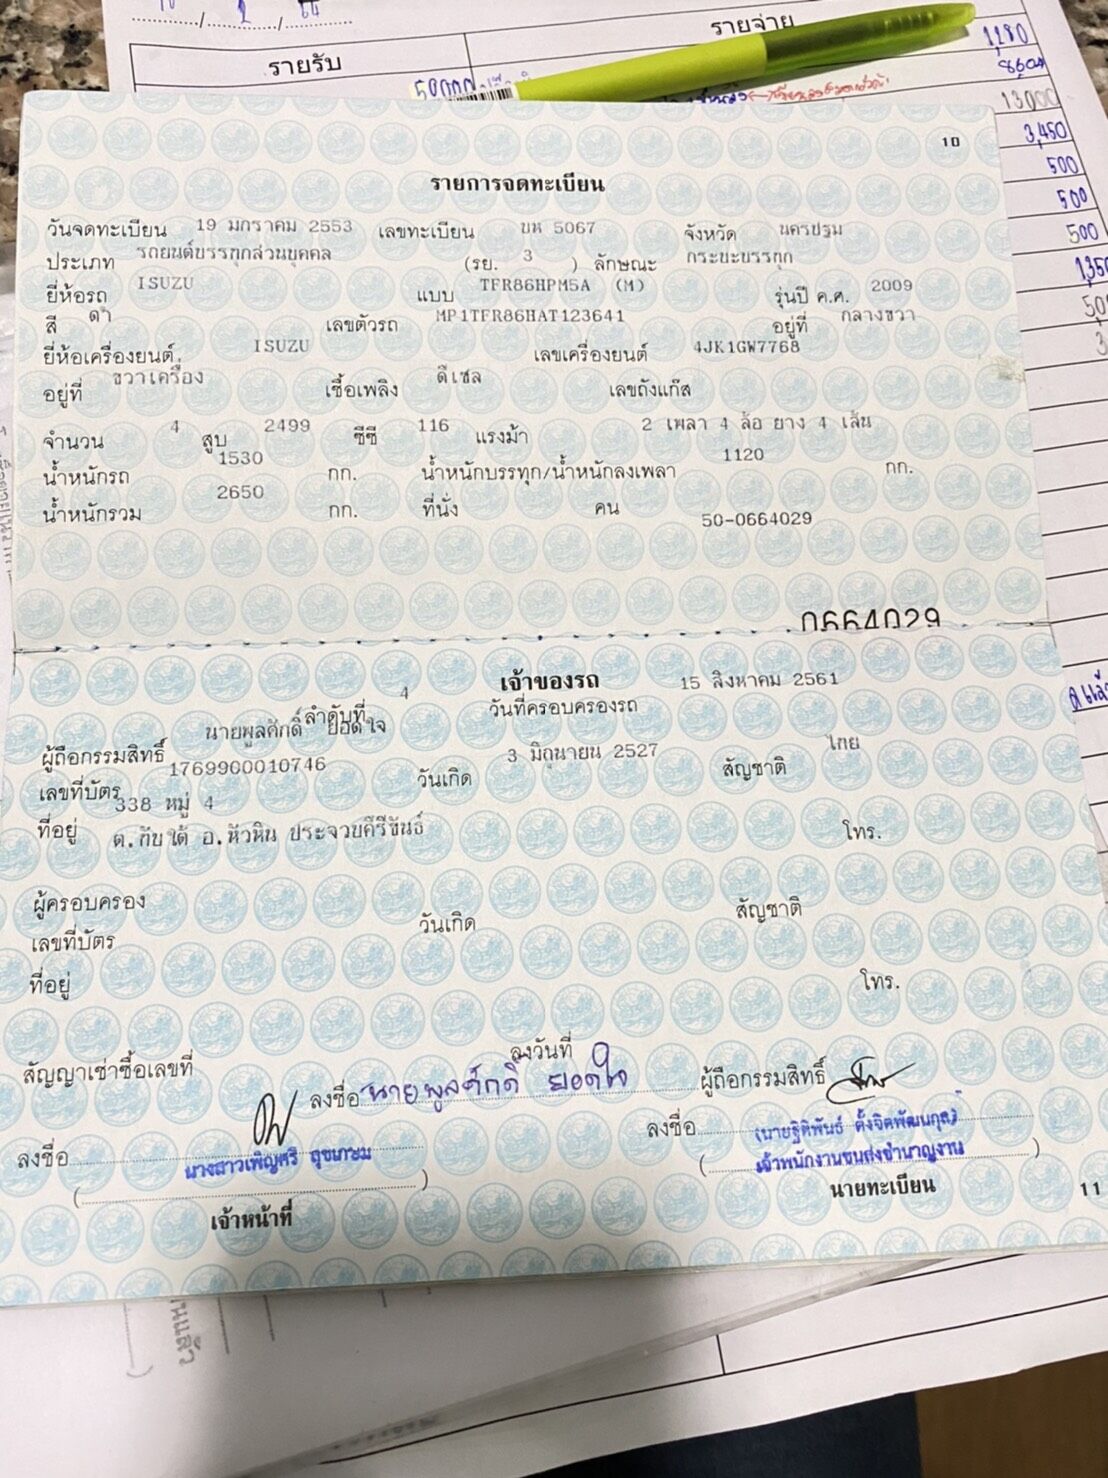 รายรับ
รายจ่าย
1,280
13,000
3,450
500
500
500
10
รายการจดทะเบียน
วันจดทะเบียน 19 มกราคม 2553 เลขทะเบียน บห 5067 จังหวัด นครปฐม
ประเภท รถยนต์บรรทุกส่วนบุคคล (รย. 3 ) ลักษณะ กระบะบรรทุก
ยี่ห้อรถ ISUZU แบบ TFR86HPM5A (M) รุ่นปี ค.ศ. 2009
สี ดำ เลขตัวรถ MP1TFR86HAT123641 อยู่ที่ กลางขวา
ยี่ห้อเครื่องยนต์ ISUZU เลขเครื่องยนต์ 4JK1GW7768
อยู่ที่ ขวาเครื่อง เชื้อเพลิง ดีเซล เลขถังแก๊ส
จำนวน 4 สูบ 2499 ซีซี 116 แรงม้า 2 เพลา 4 ล้อ ยาง 4 เส้น
น้ำหนักรถ 1530 กก. น้ำหนักบรรทุก/น้ำหนักลงเพลา 1120 กก.
น้ำหนักรวม 2650 กก. ที่นั่ง คน
50-0664029
0664029
เจ้าของรถ
ลำดับที่ 4 วันที่ครอบครองรถ 15 สิงหาคม 2561
ผู้ถือกรรมสิทธิ์ นายพูลศักดิ์ ยอดใจ
เลขที่บัตร 1769900010746 วันเกิด 3 มิถุนายน 2527 สัญชาติ ไทย
ที่อยู่ 338 หมู่ 4
ต.ทับใต้ อ.หัวหิน ประจวบคีรีขันธ์ โทร.
ผู้ครอบครอง
เลขที่บัตร วันเกิด สัญชาติ
ที่อยู่ โทร.
สัญญาเช่าซื้อเลขที่ ลงวันที่
ลงชื่อ นายพูลศักดิ์ ยอดใจ ผู้ถือกรรมสิทธิ์
ลงชื่อ ลงชื่อ
(นายฐิติพันธ์ ตั้งจิตพัฒนกุล)
นางสาวเพ็ญศรี สุขเกษม เจ้าพนักงานขนส่งชำนาญงาน
เจ้าหน้าที่ นายทะเบียน
11